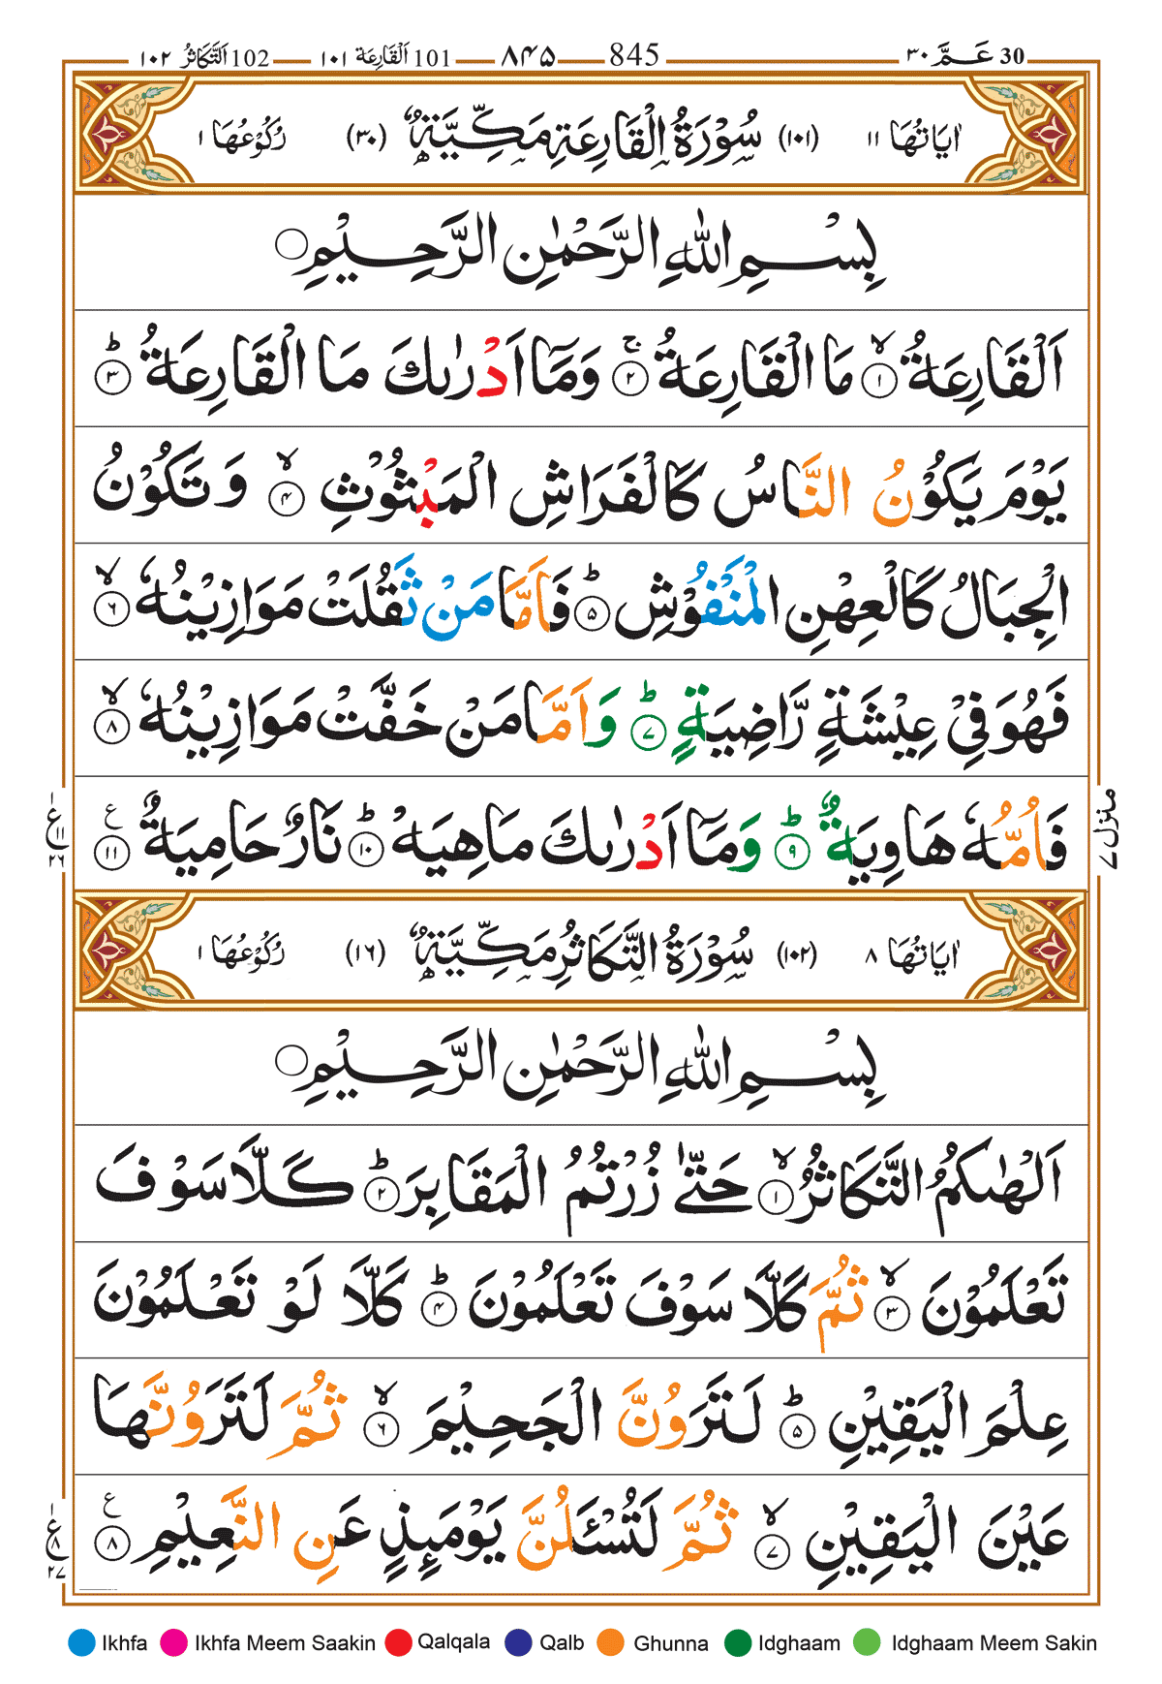 30 عَـــمَّ ٣٠ 845 ٨۴۵ 101 اَلْقَارِعَة ١٠١ 102 اَلتَّكَاثُر ١٠٢
اٰيَاتُهَا ١١ (١٠١) سُوْرَةُ الْقَارِعَةِ مَكِّيَّةٌ (٣٠) رُكُوْعُهَا ١
بِسْمِ اللّٰهِ الرَّحْمٰنِ الرَّحِيْمِ ○
اَلْقَارِعَةُ ۙ ١ مَا الْقَارِعَةُ ۚ ٢ وَمَاۤ اَدْرٰىكَ مَا الْقَارِعَةُ ؕ ٣
يَوْمَ يَكُوْنُ النَّاسُ كَالْفَرَاشِ الْمَبْثُوْثِ ۙ ۴ وَتَكُوْنُ
الْجِبَالُ كَالْعِهْنِ الْمَنْفُوْشِ ؕ ۵ فَاَمَّا مَنْ ثَقُلَتْ مَوَازِيْنُهٗ ۙ ۶
فَهُوَ فِيْ عِيْشَةٍ رَّاضِيَةٍ ؕ ۷ وَاَمَّا مَنْ خَفَّتْ مَوَازِيْنُهٗ ۙ ۸
فَاُمُّهٗ هَاوِيَةٌ ؕ ۹ وَمَاۤ اَدْرٰىكَ مَاهِيَهْ ؕ ١٠ نَارٌ حَامِيَةٌ ١١
ع
١١
٢٦
منزل ٧
اٰيَاتُهَا ٨ (١٠٢) سُوْرَةُ التَّكَاثُرِ مَكِّيَّةٌ (١٦) رُكُوْعُهَا ١
بِسْمِ اللّٰهِ الرَّحْمٰنِ الرَّحِيْمِ ○
اَلْهٰىكُمُ التَّكَاثُرُ ۙ ١ حَتّٰى زُرْتُمُ الْمَقَابِرَ ؕ ٢ كَلَّا سَوْفَ
تَعْلَمُوْنَ ۙ ٣ ثُمَّ كَلَّا سَوْفَ تَعْلَمُوْنَ ؕ ۴ كَلَّا لَوْ تَعْلَمُوْنَ
عِلْمَ الْيَقِيْنِ ؕ ۵ لَتَرَوُنَّ الْجَحِيْمَ ۙ ۶ ثُمَّ لَتَرَوُنَّهَا
عَيْنَ الْيَقِيْنِ ۙ ۷ ثُمَّ لَتُسْـَٔلُنَّ يَوْمَىِٕذٍ عَنِ النَّعِيْمِ ۸
ع
٨
٢٧
Ikhfa Ikhfa Meem Saakin Qalqala Qalb Ghunna Idghaam Idghaam Meem Sakin